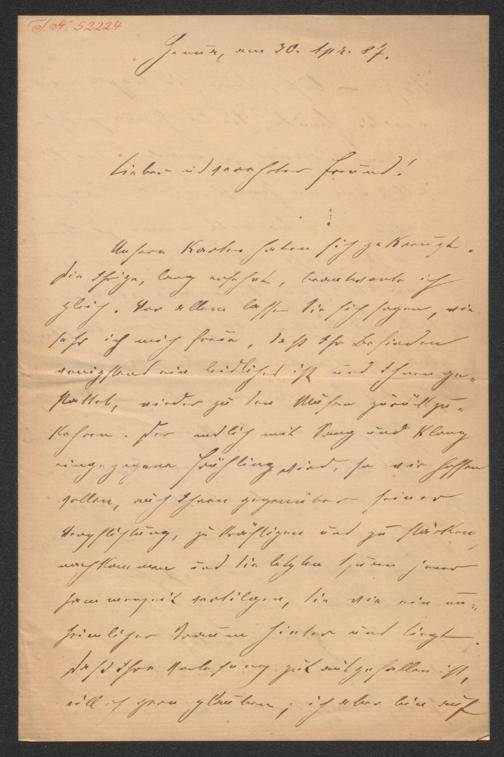 I. N. 52224
am 30. Apr. 87.
Lieber u verehrter Freund!
Unsere Karten haben sich gekreuzt.
Die Ihrige, lang ersehnt, beantworte ich
gleich. Vor allem lassen Sie sich sagen, wie
sehr ich mich freue, daß Ihr Befinden
wenigstens ein leidliches ist und Ihnen ge-
stattet, wieder zu den Musen zurückzu-
kehren. Der endlich mit Sang und Klang
eingezogene Frühling wird, so wir hoffen
wollen, auch Ihnen gegenüber seiner
Verpflichtung, zu kräftigen und zu stärken,
nachkommen und die letzten Spuren jener
vertilgen, die wie ein un-
heimlicher Traum hinter uns liegt.
Daß Ihre Vorlesung gut ausgefallen ist,
will ich gern glauben; ich aber bin auf